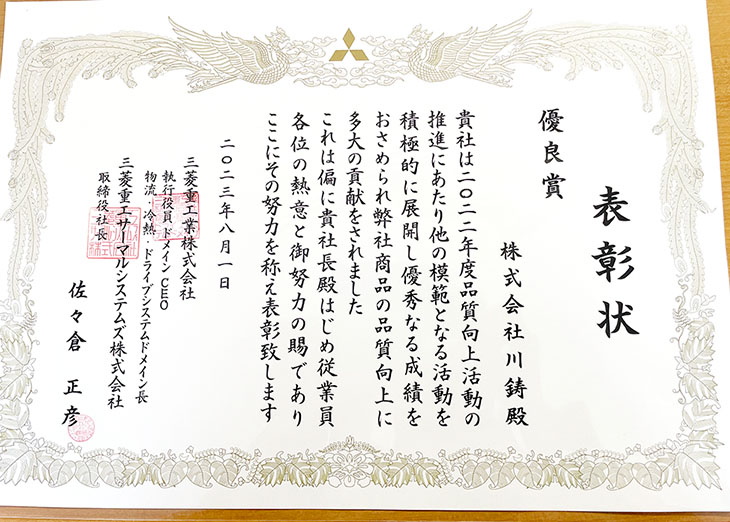 表彰状
株式会社川鋳殿
優良賞
貴社は二〇二二年度品質向上活動の
推進にあたり他の模範となる活動を
積極的に展開し優秀なる成績を
おさめられ弊社商品の品質向上に
多大の貢献をされました
これは偏に貴社長殿はじめ従業員
各位の熱意と御努力の賜であり
ここにその努力を称え表彰致します
二〇二三年八月一日
三菱重工業株式会社
執行役員 ドメインCEO
物流・冷熱・ドライブシステムドメイン長
三菱重工サーマルシステムズ株式会社
取締役社長
佐々倉 正彦